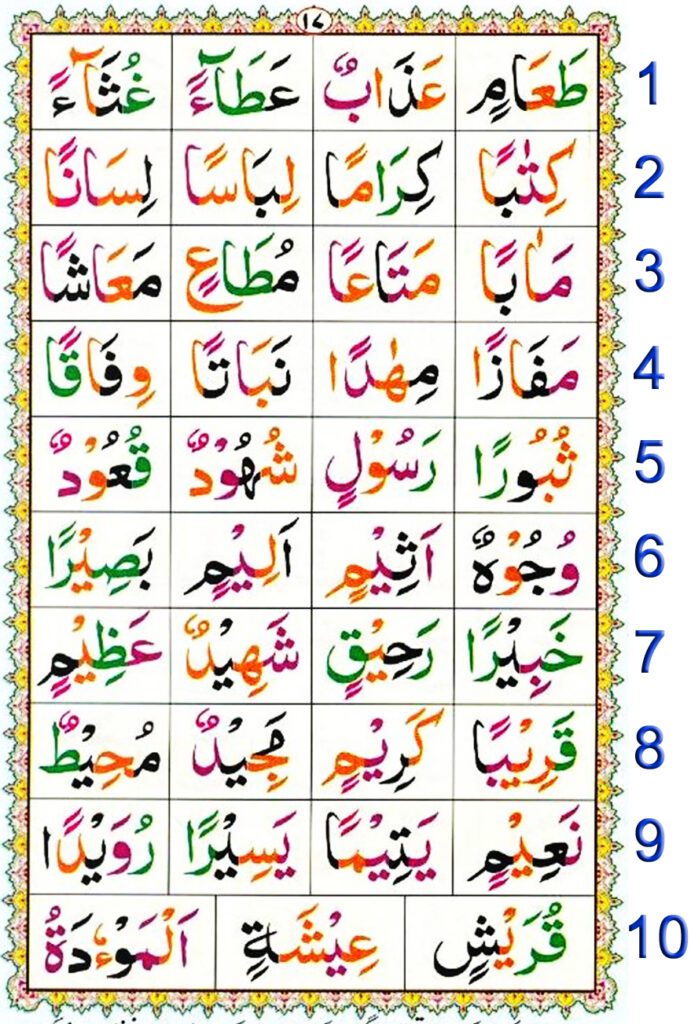 1 طَعَامٍ عَذَابٌ عَطَآءً غُثَآءً
2 كِتٰبًا كِرَامًا لِبَاسًا لِسَانًا
3 مَاٰبًا مَتَاعًا مُطَاعٍ مَعَاشًا
4 مَفَازًا مِهٰدًا نَبَاتًا وِفَاقًا
5 ثُبُورًا رَسُوْلٍ شُهُوْدٌ قُعُوْدٌ
6 وُجُوْهٌ اَثِيْمٍ اَلِيْمٍ بَصِيْرًا
7 خَبِيْرًا رَحِيْقٍ شَهِيْدٌ عَظِيْمٍ
8 قَرِيْبًا كَرِيْمٍ مَجِيْدٌ مُحِيْطٌ
9 نَعِيْمٍ يَتِيْمًا يَسِيْرًا رُوَيْدًا
10 قُرَيْشٍ عِيْشَةٍ اَلْمَوْءٗدَةُ